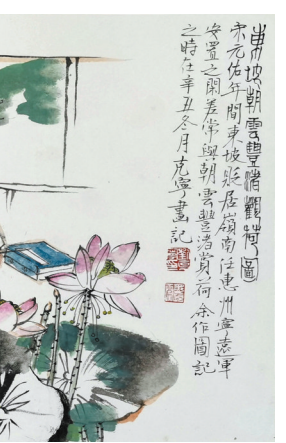 東坡朝雲豐渚觀荷圖
宋元佑年間東坡貶居嶺南任惠州寧遠軍
安置之閑差常與朝雲豐渚賞荷余作圖記
之時在辛丑冬月克寧畫記